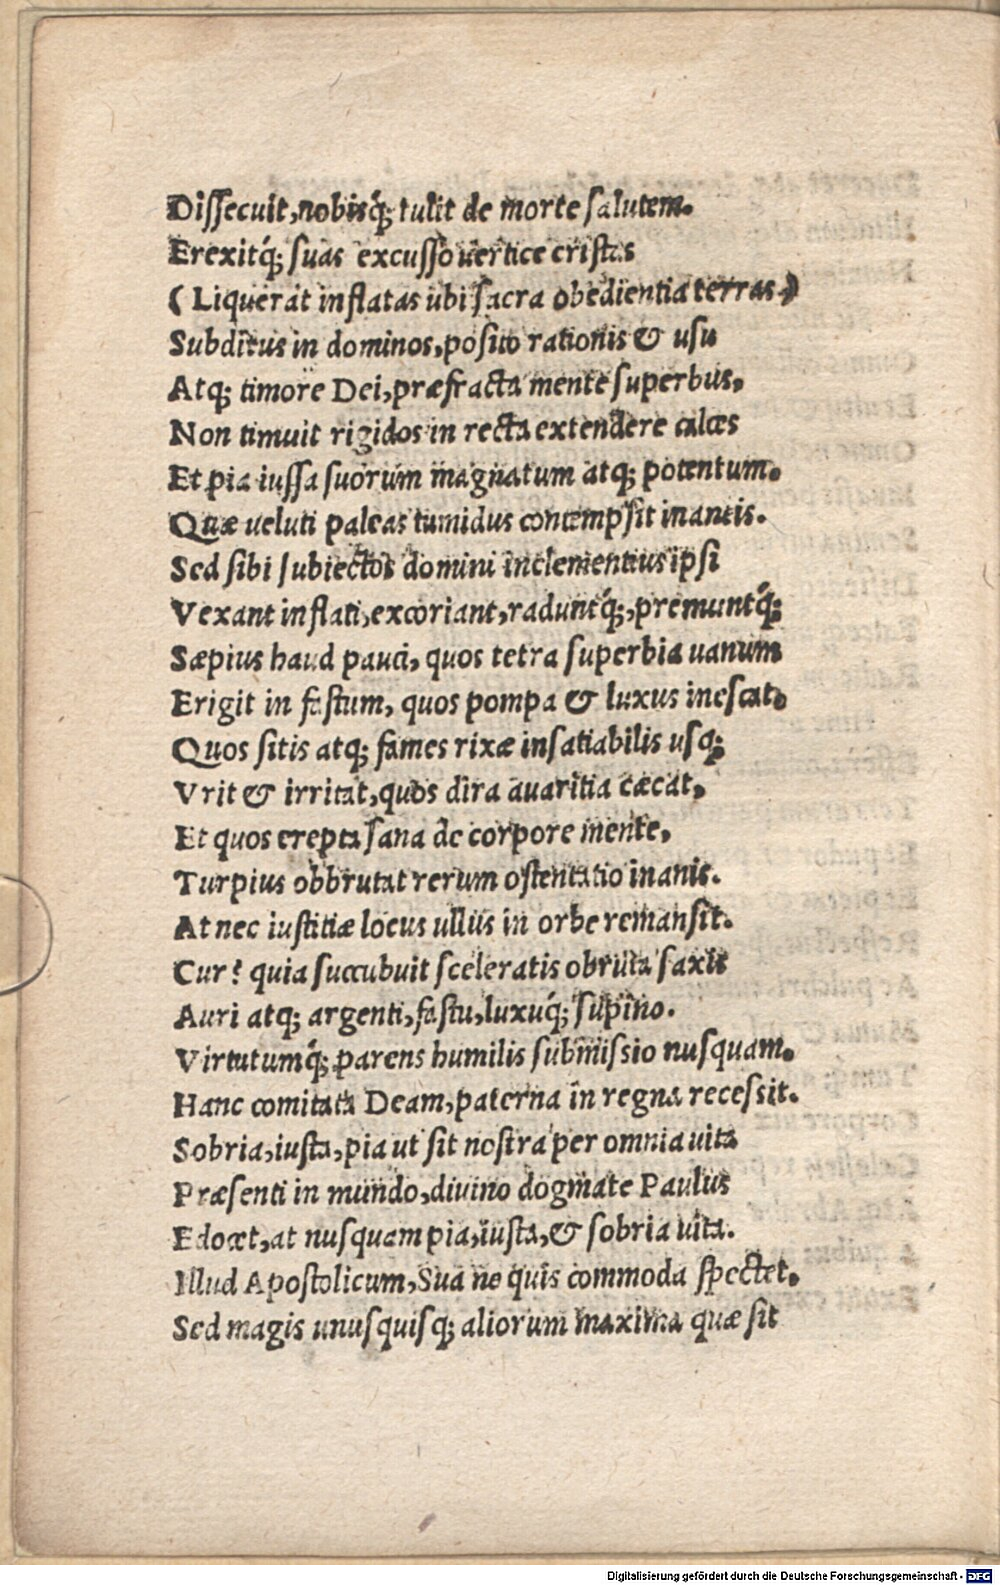 Dissecuit, nobisq́; tulit de morte salutem.
Erexitq́; suas excusso uertice cristas
( Liquerat inflatas ubi sacra obedientia terras.)
Subditus in dominos, posito rationis & usu
Atq; timore Dei, præfracta mente superbus,
Non timuit rigidos in recta extendere calces
Et pia iussa suorum magnatum atq; potentum.
Quæ ueluti paleas tumidus contempsit inaneis.
Sed sibi subiectos domini inclementius ipsi
Vexant inflati, excoriant, raduntq́;, premuntq́;
Sæpius haud pauci, quos tetra superbia uanum
Erigit in fastum, quos pompa & luxus inescat.
Quos sitis atq; fames rixæ insatiabilis usq;
Vrit & irritat, quos dira auaritia cæcat,
Et quos erepta sana de corpore mente,
Turpius obbrutat rerum ostentatio inanis.
At nec iustitiæ locus ullus in orbe remansit.
Cur? quia succubuit sceleratis obruta saxis
Auri atq; argenti, fastu, luxuq́; supino.
Virtutumq́; parens humilis submissio nusquam.
Hanc comitata Deam, paterna in regna recessit.
Sobria, iusta, pia ut sit nostra per omnia uita
Præsenti in mundo, diuino dogmate Paulus
Edocet, at nusquam pia, iusta, & sobria uita.
Illud Apostolicum, Sua ne quis commoda spectet.
Sed magis unusquisq; aliorum maxima quæ sit
Digitalisierung gefördert durch die Deutsche Forschungsgemeinschaft - DFG